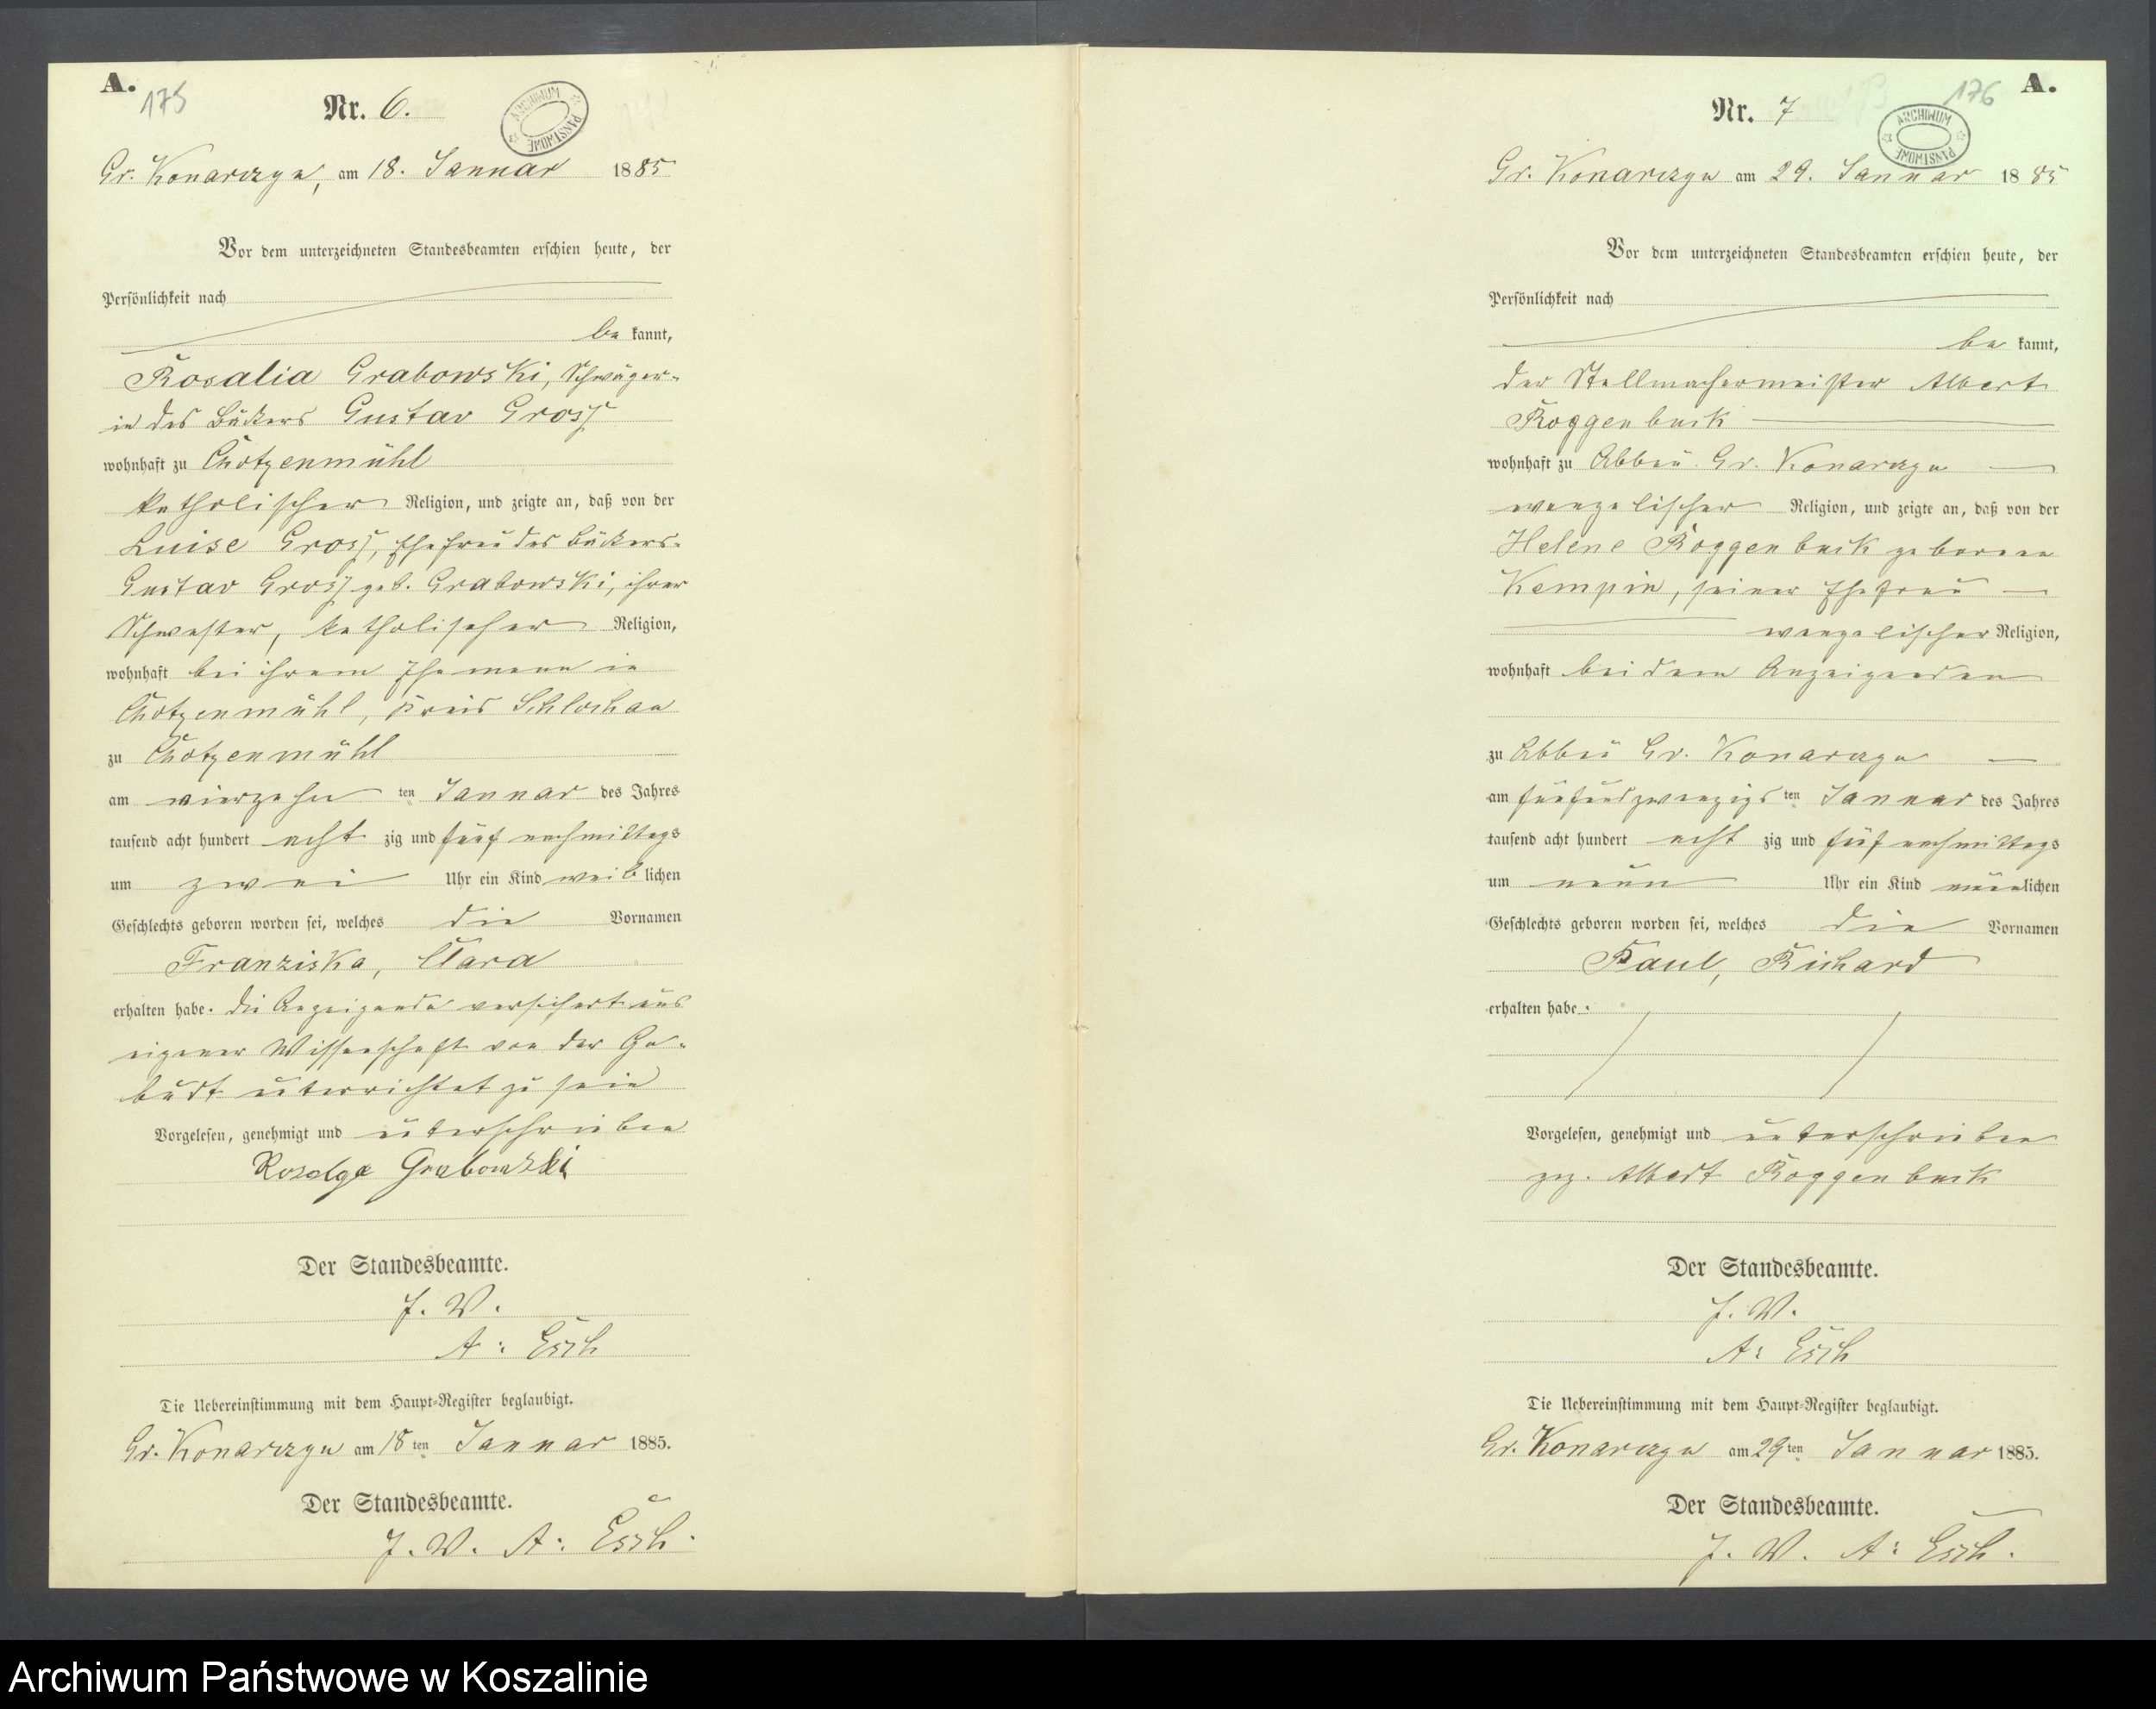 A.
175
Nr. 6.
ARCHIWUM PAŃSTWOWE
Gr. Konarczyn, am 18. Januar 1885
Vor dem unterzeichneten Standesbeamten erschien heute, der
Persönlichkeit nach
be kannt,
Rosalia Grabowski, Schwäger-
in des Bäckers Gustav Gross
wohnhaft zu Chotzenmühl
katholischer Religion, und zeigte an, daß von der
Luise Gross, Ehefrau des Bäckers
Gustav Gross geb. Grabowski, ihrer
Schwester, katholischer Religion,
wohnhaft bei ihrem Ehemann in
Chotzenmühl, Kreis Schlochau
zu Chotzenmühl
am vierzehn ten Januar des Jahres
tausend acht hundert acht zig und fünf nachmittags
um zwei Uhr ein Kind weib lichen
Geschlechts geboren worden sei, welches die Vornamen
Franziska, Clara
erhalten habe. Die Anzeigende versichert aus
eigener Wissenschaft von der Ge-
burt unterrichtet zu sein
Vorgelesen, genehmigt und unterschrieben
Rozalya Grabowski
Der Standesbeamte.
J. V.
A: Esch
Die Uebereinstimmung mit dem Haupt-Register beglaubigt.
Gr. Konarczyn am 18 ten Januar 1885.
Der Standesbeamte.
J. V. A: Esch.
176
A.
Nr. 7
ARCHIWUM PAŃSTWOWE
Gr. Konarczyn am 29. Januar 1885
Vor dem unterzeichneten Standesbeamten erschien heute, der
Persönlichkeit nach
be kannt,
der Stellmachermeister Albert
Roggenbuck
wohnhaft zu Abbau Gr. Konarczyn
evangelischer Religion, und zeigte an, daß von der
Helene Roggenbuck geborene
Kempin, seiner Ehefrau
evangelischer Religion,
wohnhaft bei dem Anzeigenden
zu Abbau Gr. Konarczyn
am fünfundzwanzigs ten Januar des Jahres
tausend acht hundert acht zig und fünf nachmittags
um neun Uhr ein Kind männlichen
Geschlechts geboren worden sei, welches die Vornamen
Paul, Richard
erhalten habe.
Vorgelesen, genehmigt und unterschrieben
gez. Albert Roggenbuck
Der Standesbeamte.
J. V.
A: Esch
Die Uebereinstimmung mit dem Haupt-Register beglaubigt.
Gr. Konarczyn am 29 ten Januar 1885.
Der Standesbeamte.
J. V. A: Esch.
Archiwum Państwowe w Koszalinie